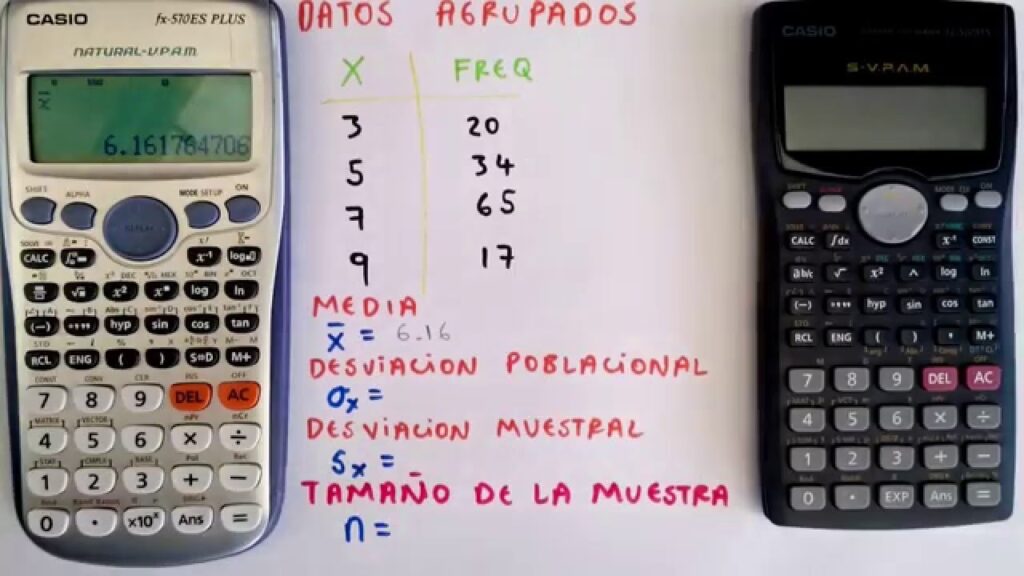 DATOS AGRUPADOS
X FREQ
3 20
5 34
7 65
9 17
MEDIA
x̄ = 6.16
DESVIACION POBLACIONAL
σx =
DESVIACION MUESTRAL
Sx =
TAMAÑO DE LA MUESTRA
n =
CASIO fx-570ES PLUS
NATURAL-V.P.A.M.
x̄
6.161764706
SHIFT ALPHA MODE SETUP ON
REPLAY
CALC x⁻¹
x² log ln
(−) hyp sin cos tan
RCL ENG ( ) S⇔D M+
7 8 9 DEL AC
4 5 6 × ÷
1 2 3 + −
0 . ×10ˣ Ans =
CASIO
S-V.P.A.M.
SHIFT MODE ON
CALC ∫dx x⁻¹ CONST
ab/c √ x² ^ log ln
(−) hyp sin cos tan
RCL ENG ( ) , M+
7 8 9 DEL AC
4 5 6 × ÷
1 2 3 + −
0 . EXP Ans =